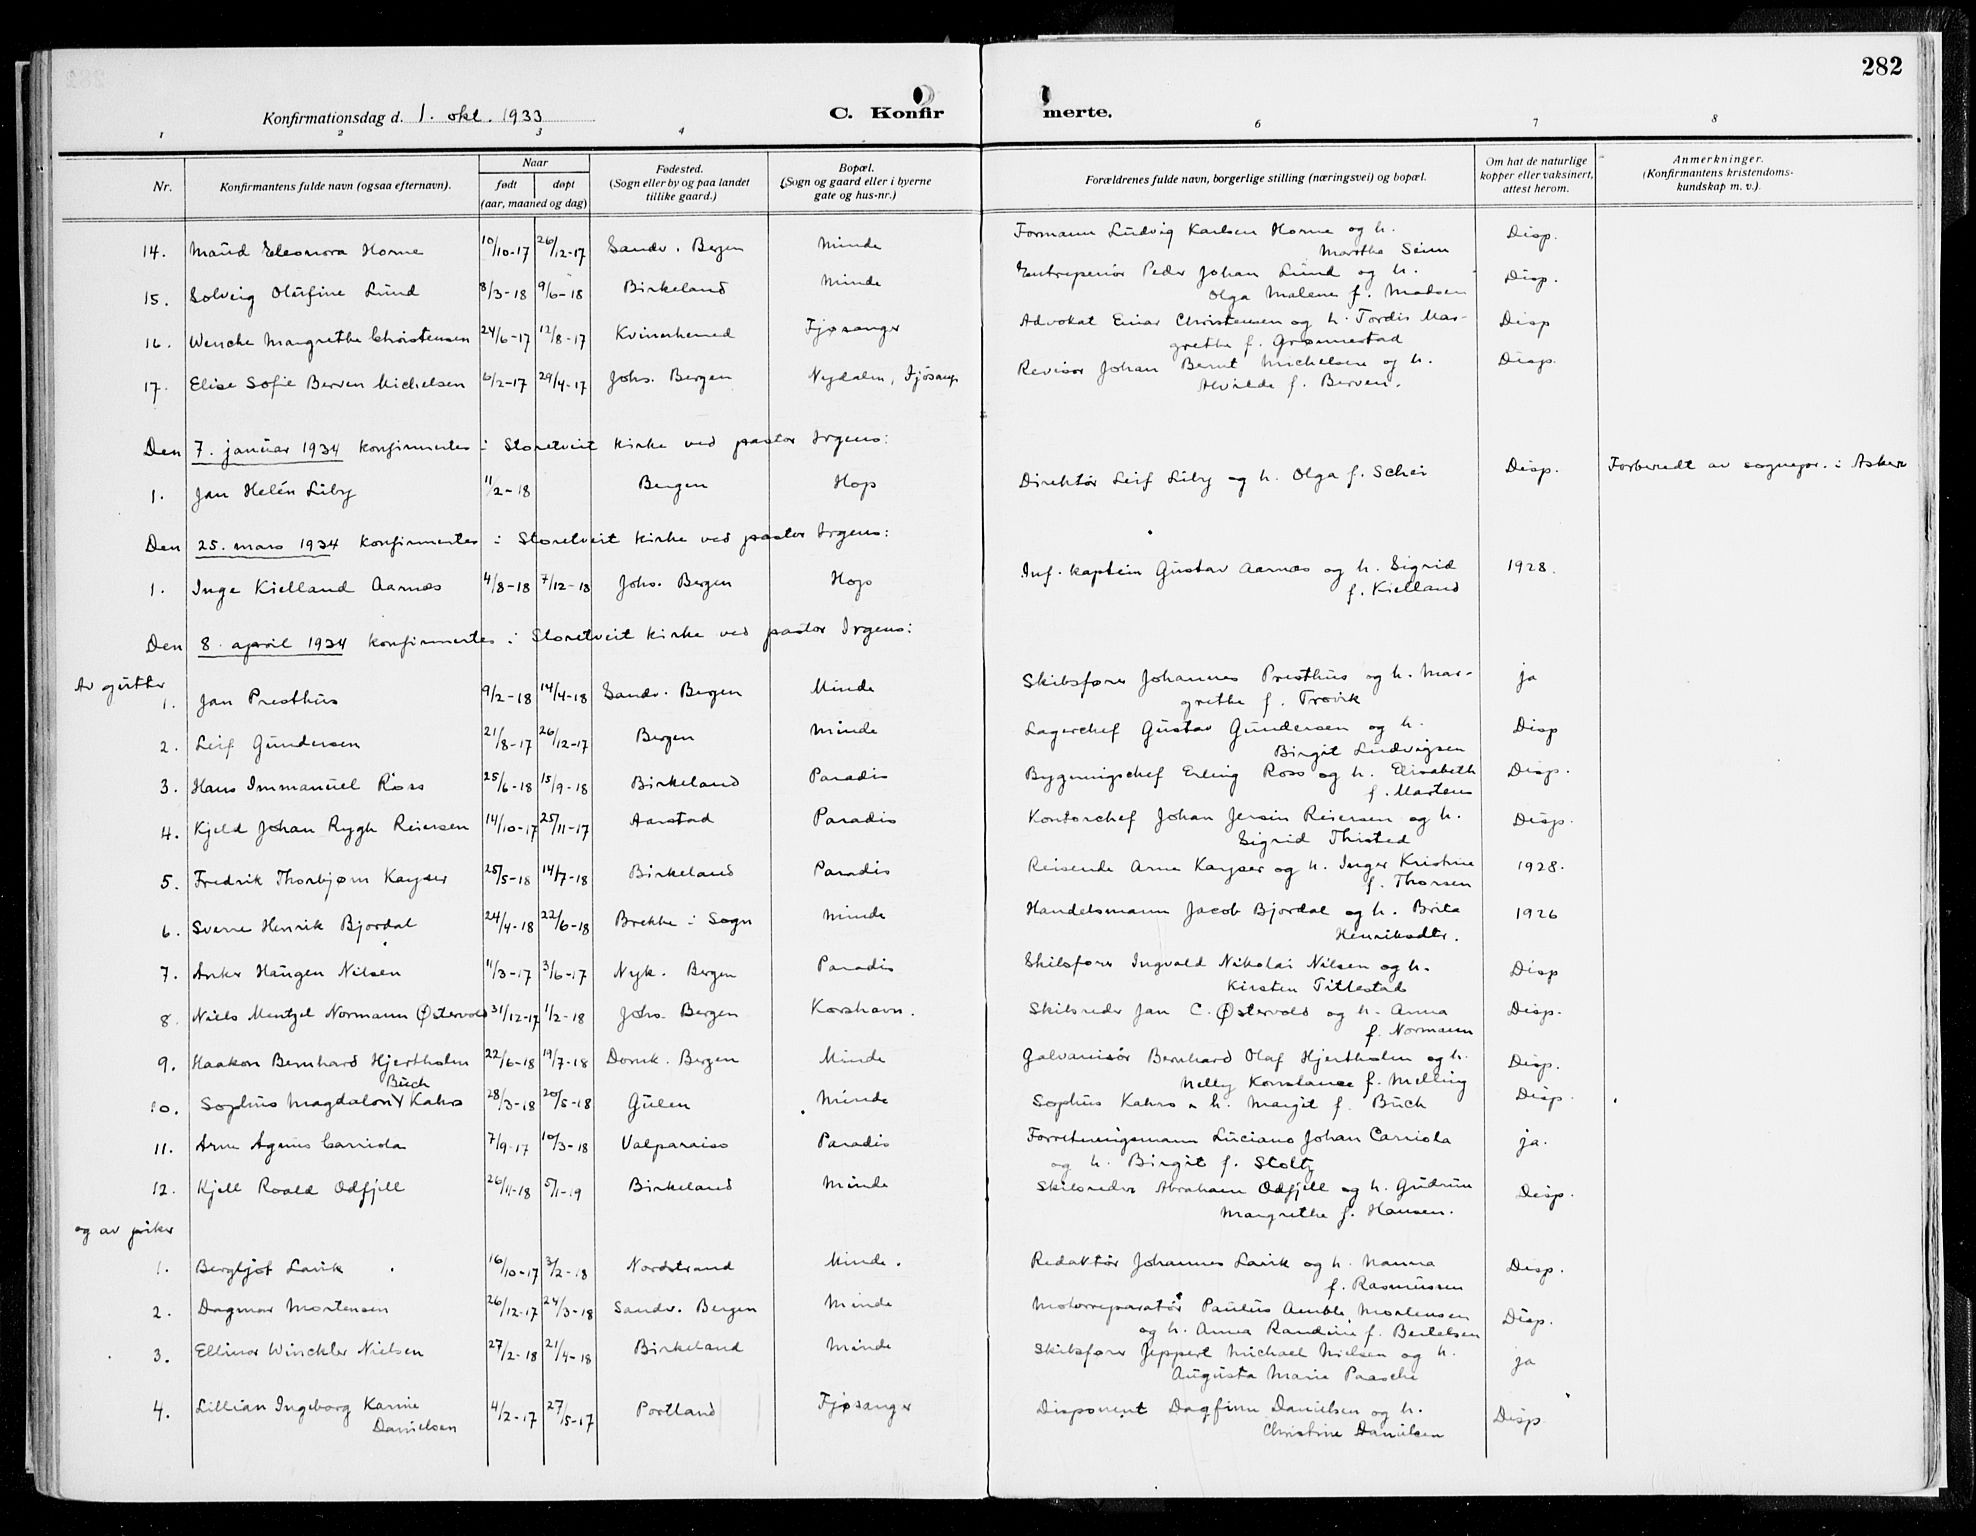 282
Konfirmationsdag d. 1. okt. 1933
C. Konfir
merte.
1 2 3 4 6 7 8
Nr.
Konfirmantens fulde navn (ogsaa efternavn).
Naar
født
døpt
(aar, maaned og dag)
Fødested.
(Sogn eller by og paa landet
tillike gaard.)
Bopæl.
(Sogn og gaard eller i byerne
gate og hus-nr.)
Forældrenes fulde navn, borgerlige stilling (næringsvei) og bopæl.
Om hat de naturlige
kopper eller vaksinert,
attest herom.
Anmerkninger.
(Konfirmantens kristendoms-
kundskap m. v.).
14. Maud Eleonora Horne 10/10-17 26/12-17 Sandv. Bergen Minde Formann Ludvig Karlsen Horne og h. Disp.
Martha Seim
15. Solveig Olufine Lund 8/3-18 9/6-18 Birkeland Minde Entreprenør Peder Johan Lund og h. Disp.
Olga Malene f. Madsen
16. Wenche Margrethe Christensen 24/6-17 12/8-17 Kvinnherred Fjøsanger Advokat Einar Christensen og h. Tordis Mar- Disp
grethe f. Grønnestad
17. Elise Sofie Berven Michelsen 6/2-17 29/4-17 Johs. Bergen Nydalen, Fjøsang. Revisor Johan Bernt Michelsen og h. Disp.
Alvilde f. Berven.
Den 7. januar 1934 konfirmertes i Storetveit kirke ved pastor Irgens:
1. Jan Helén Liby 11/2-18 Bergen Hop Direktør Leif Liby og h. Olga f. Schei Disp. Forberedt av sognepr. i Asker
Den 25. mars 1934 konfirmertes i Storetveit kirke ved pastor Irgens:
1. Inge Kielland Aarnæs 4/8-18 7/12-18 Johs. Bergen Hop Inf. kaptein Gustav Aarnæs og h. Sigrid 1928.
f. Kielland
Den 8. april 1934 konfirmertes i Storetveit kirke ved pastor Irgens:
Av gutter
1. Jan Presthus 9/2-18 14/4-18 Sandv. Bergen Minde Skibsfører Johannes Presthus og h. Mar- ja
grethe f. Trovik
2. Leif Gundersen 21/8-17 26/12-17 Bergen Minde Lagerchef Gustav Gundersen og h. Disp
Birgit Ludvigsen
3. Hans Immanuel Ross 25/6-18 15/9-18 Birkeland Paradis Bygningschef Erling Ross og h. Elisabeth Disp.
f. Martens
4. Kjeld Johan Rygh Reiersen 14/10-17 25/11-17 Aarstad Paradis Kontorchef Johan Jersin Reiersen og h. Disp.
Sigrid Thisted
5. Fredrik Thorbjørn Kayser 25/5-18 14/7-18 Birkeland Paradis Reisende Arne Kayser og h. Inger Kristine 1928.
f. Thorsen
6. Sverre Henrik Bjordal 24/4-18 22/6-18 Brekke i Sogn Minde Handelsmann Jacob Bjordal og h. Brita 1926
Henriksdtr.
7. Anker Haugen Nilsen 11/3-17 3/6-17 Nyk. Bergen Paradis Skibsfører Ingvald Nikolai Nilsen og h. Disp
Kirsten Tittestad
8. Niels Mentzel Normann Østervold 31/12-17 1/2-18 Johs. Bergen Korshavn. Skibsreder Jan C. Østervold og h. Anna Disp.
f. Normann
9. Haakon Bernhard Hjertholm 22/6-18 19/7-18 Domk. Bergen Minde Galvanisør Bernhard Olaf Hjertholm og h. Disp.
Nelly Konstance f. Melling
Buch
10. Sophus Magdalon Kahrs 28/3-18 20/5-18 Gulen Minde Sophus Kahrs & h. Margit f. Buch Disp.
11. Arne Agnus Carriola 7/9-17 10/3-18 Valparaiso Paradis Forretningsmann Luciano Johan Carriola ja.
og h. Birgit f. Stoltz
12. Kjell Roald Odfjell 26/11-18 5/1-19 Birkeland Minde Skibsreder Abraham Odfjell og h. Gudrun Disp.
Margrethe f. Hansen.
og av piker
1. Bergljot Lavik 16/10-17 3/2-18 Nordstrand Minde. Redaktør Johannes Lavik og h. Nanna Disp.
f. Rasmussen
2. Dagmar Mortensen 26/12-17 24/3-18 Sandv. Bergen Minde Motorreparatør Paulus Amble Mortensen Disp.
og h. Anna Randine f. Bertelsen
3. Ellinor Winckler Nielsen 27/2-18 21/4-18 Birkeland Minde Skibsfører Jeppert Michael Nielsen og h. ja
Augusta Marie Paasche
4. Lillian Ingeborg Karine 4/2-17 27/5-17 Portland Fjøsanger Disponent Dagfinn Danielsen og h. Disp
Danielsen Christine Danielsen